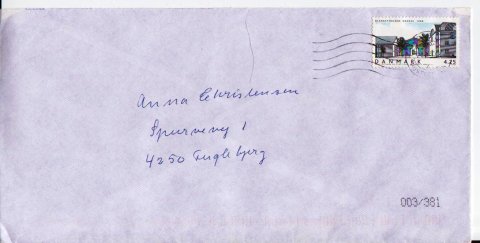 DANMARK 4.25
Anna Christensen
Spurvevej 1
4250 Fuglebjerg
003/381